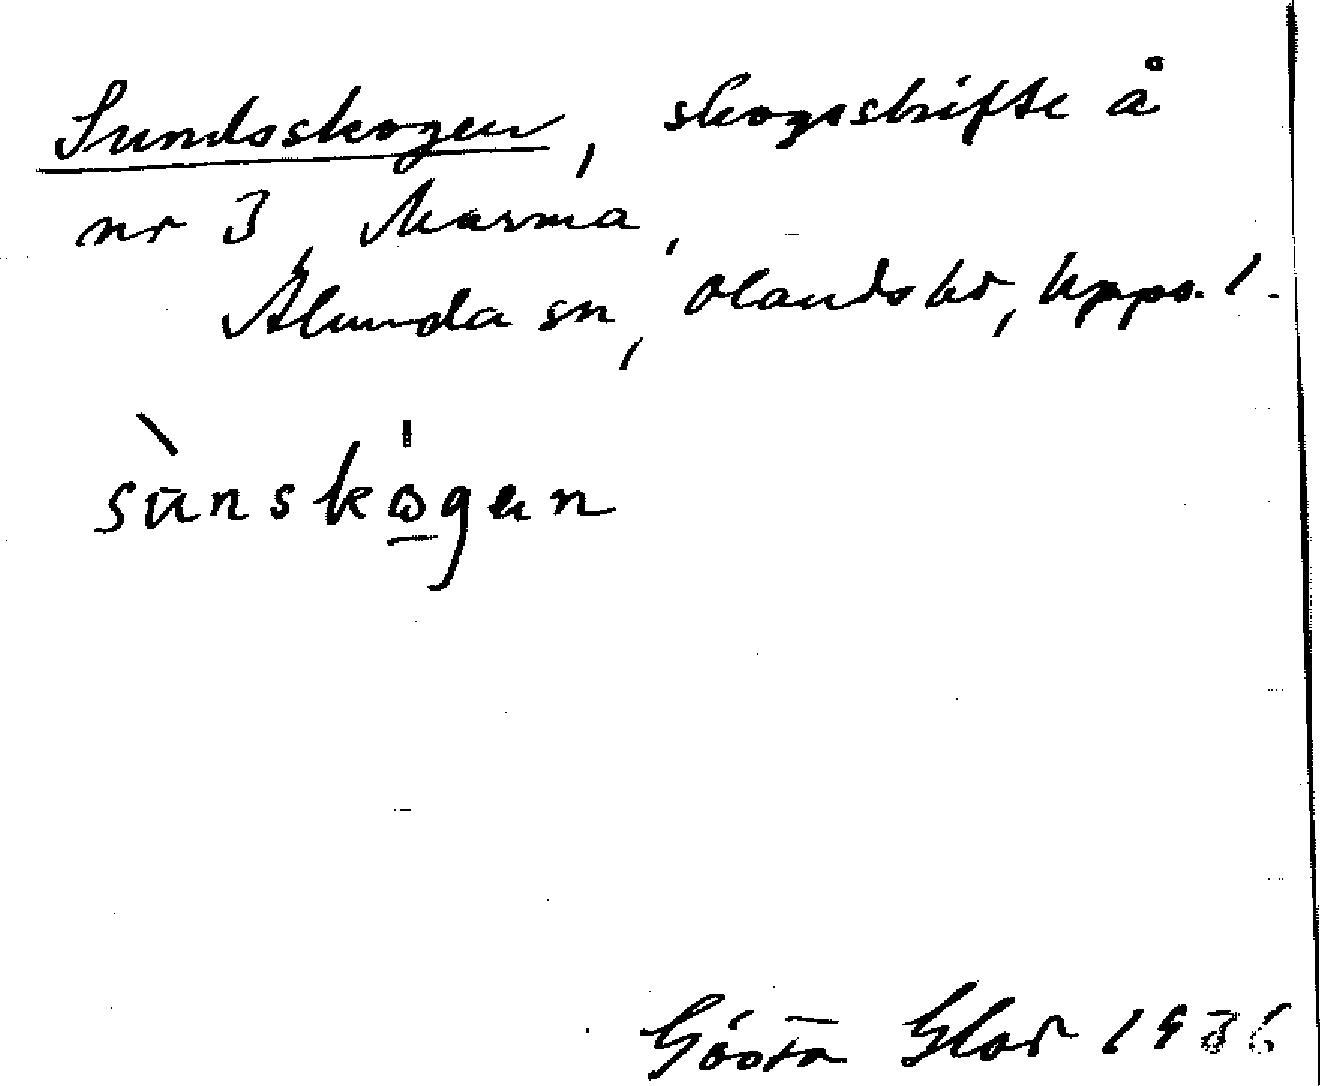 Sundsskogen, skogsskifte å
nr 3 Marma,
Alunda sn, Olands hd, Upps. l.
sùnskо̲gen
Gösta Glad 1936